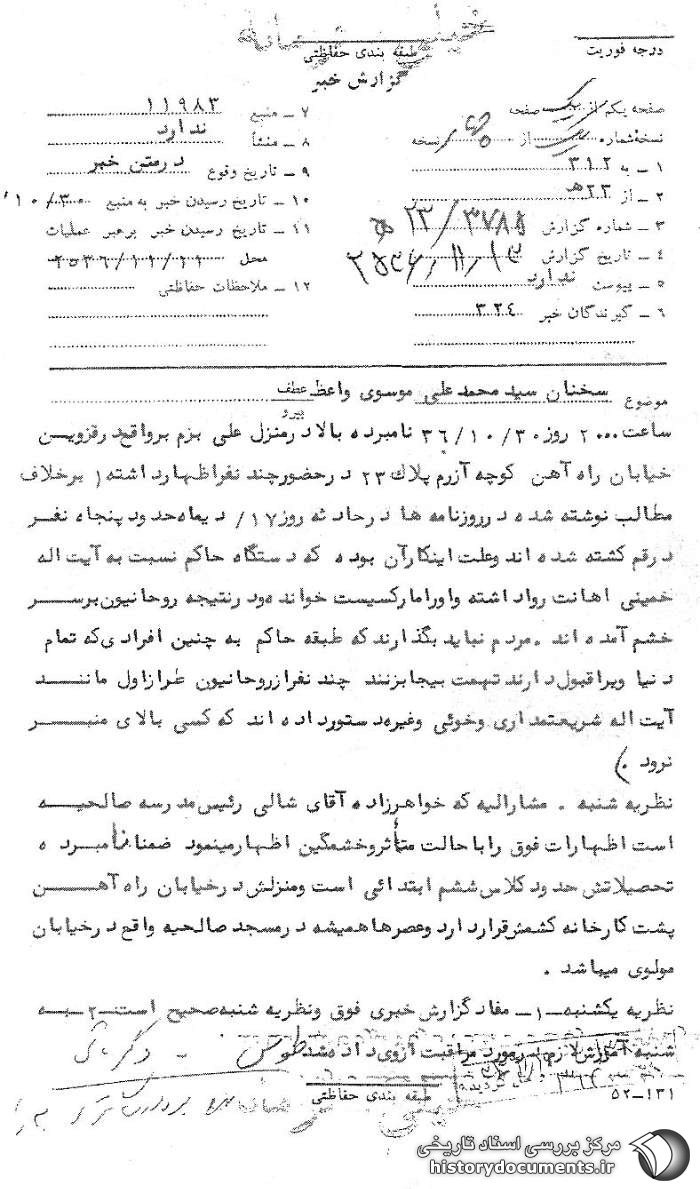 درجه فوریت
طبقه بندی حفاظتی
گزارش خبر
صفحه یکم از یک صفحه
نسخه شماره از نسخه
۱ - به ۳۱۲
۲ - از ۲۳ هـ
۳ - شماره گزارش
۴ - تاریخ گزارش
۵ - پیوست ندارد
۶ - گیرندگان خبر ۳۲۴
۷ - منبع ۱۱۹۸۳
۸ - منشأ ندارد
۹ - تاریخ وقوع درمتن خبر
۱۰ - تاریخ رسیدن خبر به منبع ۱۰/۳۰
۱۱ - تاریخ رسیدن خبر برهبر عملیات
محل ۲۵۳۶/۱۱/۱۱
۱۲ - ملاحظات حفاظتی
موضوع سخنان سید محمد علی موسوی واعظ عطف
پیرو
ساعت ۲۰۰۰ روز ۳۶/۱۰/۳۰ نامبرده بالا درمنزل علی بزم برواقع درقزوین
خیابان راه آهن کوچه آزرم پلاک ۲۳ درحضورچند نفراظهارداشته (برخلاف
مطالب نوشته شده درروزنامه ها درحادثه روز ۱۷/ دیماه حدود پنجاه نفر
درقم کشته شده اند وعلت اینکارآن بوده که دستگاه حاکم نسبت به آیت اله
خمینی اهانت رواداشته واورامارکسیست خوانده ودرنتیجه روحانیون برسر
خشم آمده اند . مردم نباید بگذارند که طبقه حاکم به چنین افرادی که تمام
دنیا ویراقبول دارند تهمت بیجابزنند چند نفرازروحانیون طرازاول مانند
آیت اله شریعتمداری وخوئی وغیره دستورداده اند که کسی بالای منبر
نرود . )
نظریه شنبه . مشارالیه که خواهرزاده آقای شالی رئیس مدرسه صالحیه
است اظهارات فوق راباحالت متأثروخشمگین اظهارمینمود ضمنا نامبرده
تحصیلاتش حدود کلاس ششم ابتدائی است ومنزلش درخیابان راه آهن
پشت کارخانه کشمش قراردارد وعصرها همیشه درمسجد صالحیه واقع درخیابان
مولوی میباشد .
نظریه یکشنبه - ۱ - مفاد گزارش خبری فوق ونظریه شنبه صحیح است - ۲ - به
شنبه آموزش لازم درمورد مراقبت ازوی داده شد
طبقه بندی حفاظتی
۵۲-۱۳۱
مرکز بررسی اسناد تاریخی
historydocuments.ir